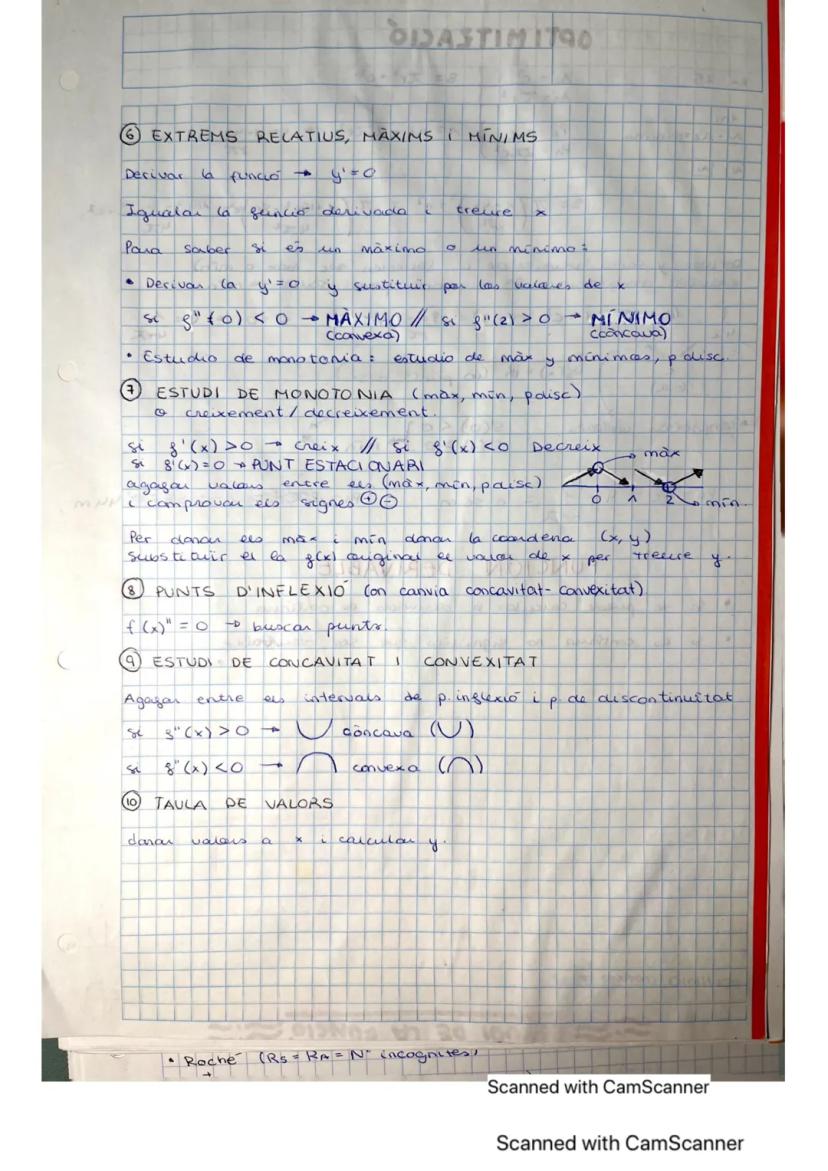 OPTIMITZACIÓ
⑥ EXTREMS RELATIUS, MÀXIMS i MÍNIMS
Derivar la funció → y' = 0
Igualar la funció derivada i treure x
Para saber si es un màximo o un mínimo:
• Derivar la y'=0 y sustituir por los valores de x
si f''(0) < 0 → MÀXIMO // si f''(2) > 0 → MÍNIMO
(convexa) (còncava)
• Estudio de monotonia: estudio de màx y mínimos, p disc.
⑦ ESTUDI DE MONOTONIA (màx, mín, p disc)
creixement / decreixement.
si f'(x) > 0 → creix // si f'(x) < 0 Decreix
màx
si f'(x) = 0 → PUNT ESTACIONARI
agafar valors entre els (màx, mín, p disc)
0 1 2
mín.
i comprovar els signes ⊕ ⊖
Per donar els màx i mín donar la coordena (x, y)
substituir el la f(x) original el valor de x per treure y.
⑧ PUNTS D'INFLEXIÓ (on canvia concavitat - convexitat)
f(x)'' = 0 → buscar punts.
⑨ ESTUDI DE CONCAVITAT I CONVEXITAT
Agafar entre els intervals de p. inflexió i p de discontinuïtat
si f''(x) > 0 → ∪ còncava (∪)
si f''(x) < 0 → ∩ convexa (∩)
⑩ TAULA DE VALORS
donar valors a x i calcular y.
• Roché (Rs = RA = Nº incognites)
Scanned with CamScanner
Scanned with CamScanner